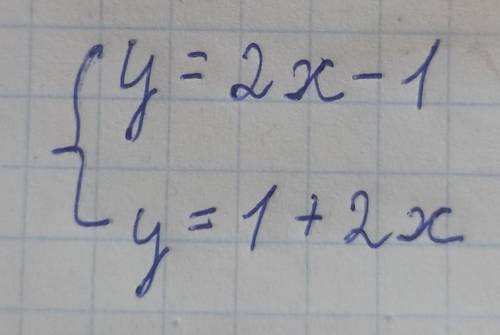 y = 2x - 1
y = 1 + 2x